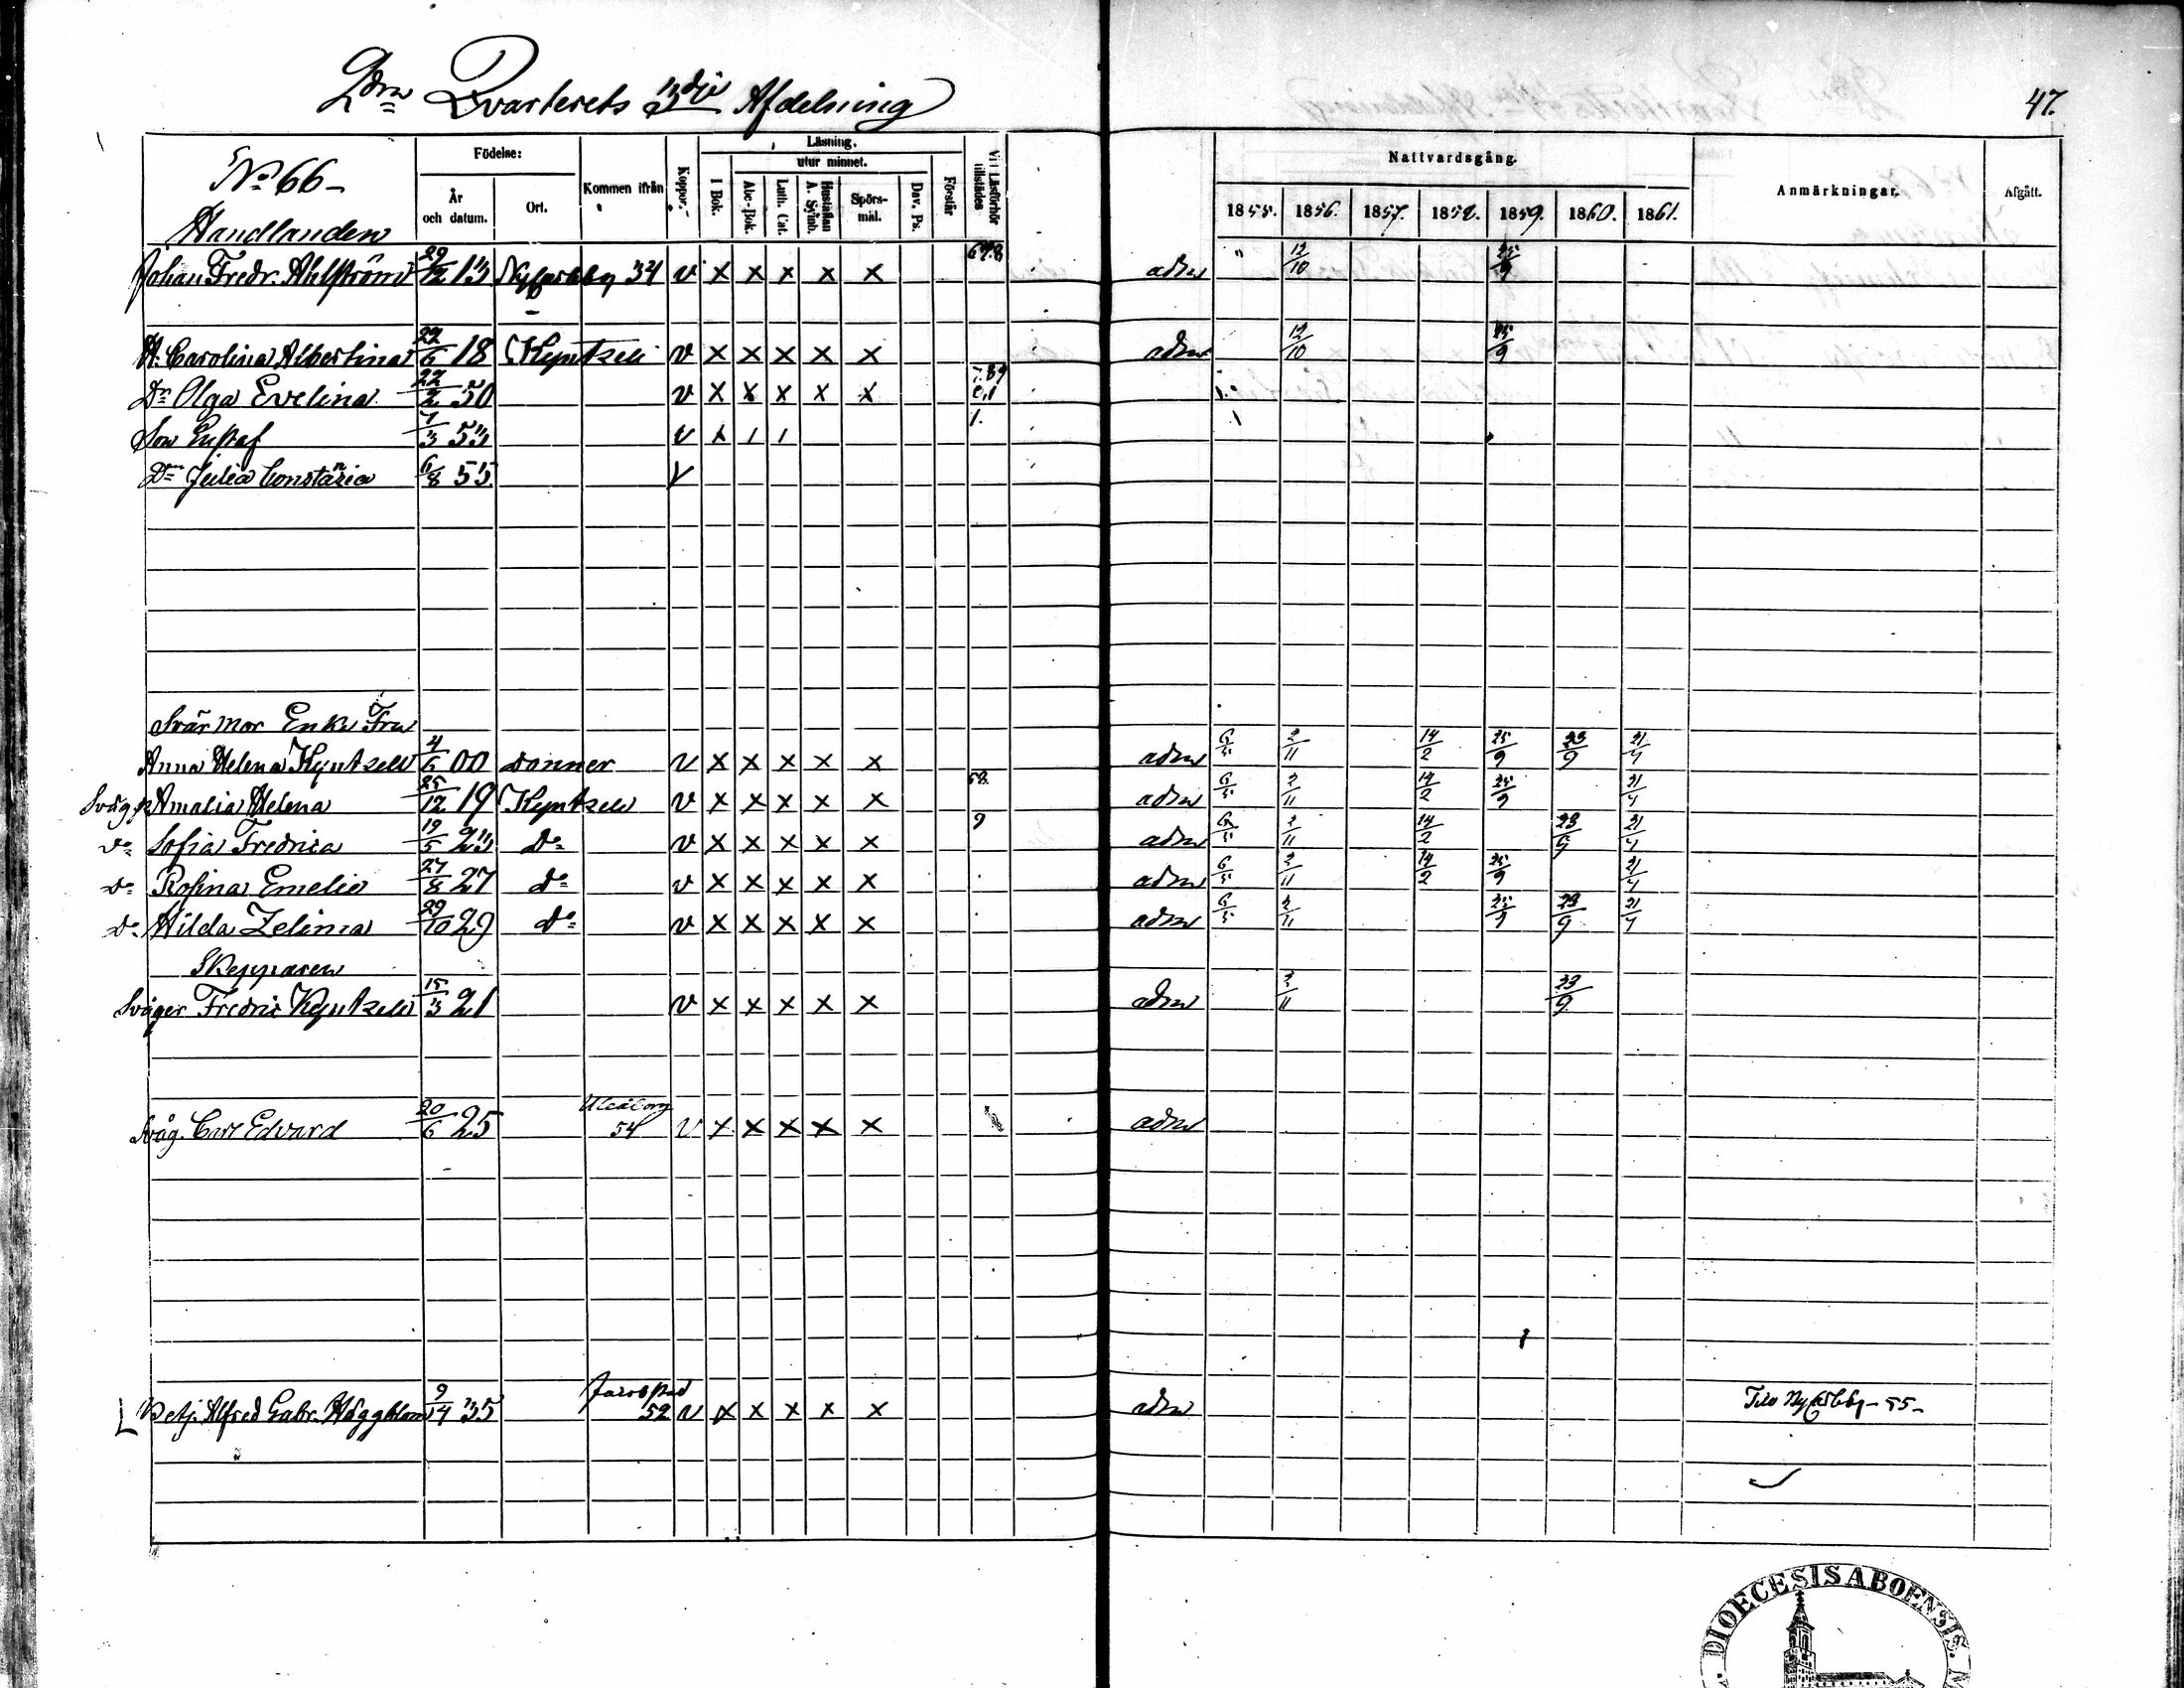 2dra Qvarterets 3dje Afdelning
47.
No 66
Handlanden
Födelse:
År och datum.
Ort.
Kommen ifrån
Koppor.
Läsning.
I Bok.
utur minnet.
Abc-Bok.
Luth. Cat.
Hustaflan A. Symb.
Spörsmål.
Dav. Ps.
Förstår
Vid Läsförhör tillstädes
Nattvardsgång.
1855. 1856. 1857. 1858. 1859. 1860. 1861.
Anmärkningar.
Afgått.
Johan Fredr. Ahlström 29/12 13 Nycarleby 34 v x x x x x 678 adm " 12/10 25/9
H. Carolina Albertina 29/6 18 Kyntzell v x x x x x adm 12/10 25/9
Dr Olga Evelina 22/2 50 v x x x x x
Son Gustaf 7/3 53 v x / / 1.
Dr Julia Constansia 6/8 55 v
Svärmor Enke Fru
Anna Helena Kyntzell 4/6 00 Donner v x x x x x adm 6/5 2/11 14/2 25/9 23/9 21/4
Sväg. Amalia Helena 25/12 19 Kyntzell v x x x x x 58. adm 6/5 2/11 14/2 25/9 21/4
Do Sofia Fredrica 19/5 23 Do v x x x x x 9 adm 6/5 2/11 14/2 23/9 21/4
Do Rosina Emelie 27/8 27 Do v x x x x x adm 6/5 2/11 14/2 25/9 21/4
Do Hilda Zelima 29/10 29 Do v x x x x x adm 6/5 2/11 25/9 23/9 21/4
Skepparen
Svåger Fredric Kyntzell 15/3 21 v x x x x x adm 2/11 23/9
Svåg. Carl Edvard 20/6 25 Uleåborg 54 v x x x x x adm
Betj. Alfred Gabr. Häggblom 9/4 35 Jacobstad 52 v x x x x x adm Till Nycarlby - 55 -
DIOECESIS ABOENSIS